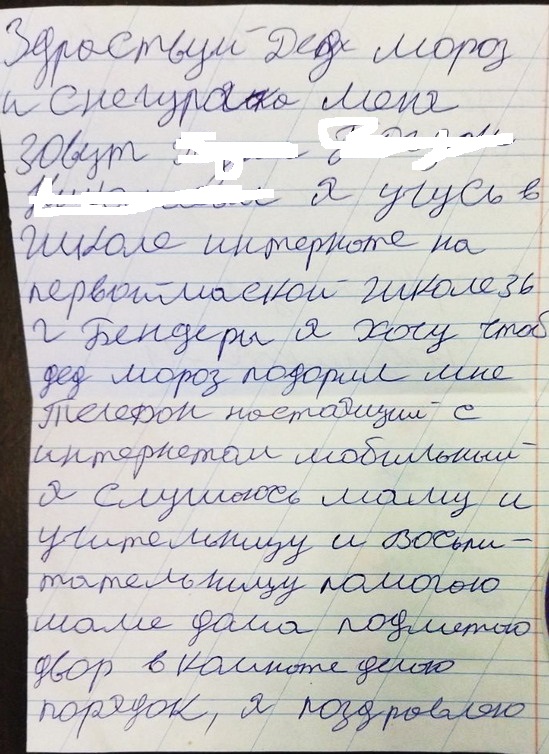 Здраствуй Дед мороз
и снегурачка меня
зовут
Я учусь в
школе интернате на
первоймаской школе 3 б
г Бендеры я хочу чтоб
дед мороз подорил мне
телефон настаящий с
интернетом мобильный
я слушаюсь маму и
учительницу и воспи-
тательницу помогою
маме дома подметаю
двор в комноте делою
порядок, я поздровляю